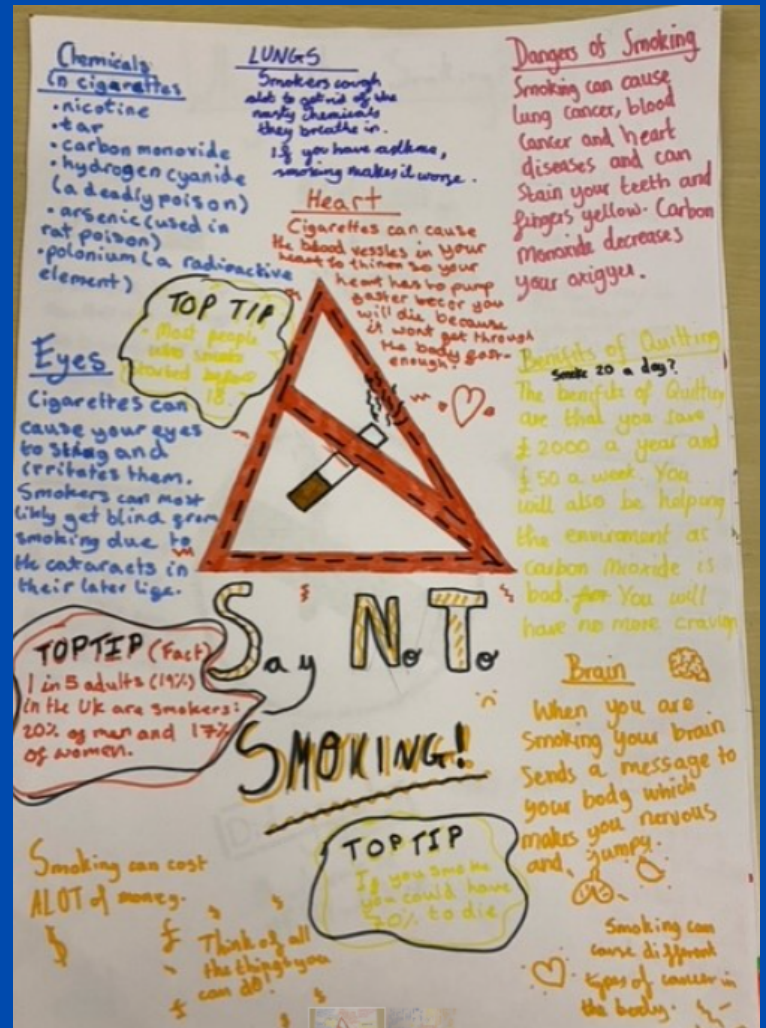 Chemicals
in cigarettes
• nicotine
• tar
• carbon monoxide
• hydrogen cyanide
(a deadly poison)
• arsenic (used in
rat poison)
• polonium (a radioactive
element)
LUNGS
Smokers cough
alot to get rid of the
nasty chemicals
they breathe in.
If you have asthma,
smoking makes it worse.
Dangers of Smoking
Smoking can cause
lung cancer, blood
cancer and heart
diseases and can
stain your teeth and
fingers yellow. Carbon
monoxide decreases
your
Heart
Cigarettes can cause
the blood vessles in your
heart to so your
heart has to pump
faster you
will die because
it wont get through
the body fast
enough.
TOP TIP
• Most people
who smoke
started before
18.
Eyes
Cigarettes can
cause your eyes
to sting and
irritates them.
Smokers can most
likly get blind from
smoking due to
the cataracts in
their later life.
Benefits of Quitting
Smoke 20 a day?
The benefits of Quitting
are that you save
£2000 a year and
£50 a week. You
will also be helping
the enviroment as
carbon is
bad. You will
have no more
TOP TIP (Fact)
1 in 5 adults (19%)
in the UK are smokers:
20% of men and 17%
of women.
Say No To
SMOKING!
Brain
When you are
smoking your brain
sends a message to
your body which
makes you nervous
and jumpy.
TOP TIP
If you smoke
you could have
to die
Smoking can cost
ALOT of money.
$
£
Think of all
the things you
can do!
Smoking can
cause different
types of cancer in
the body.